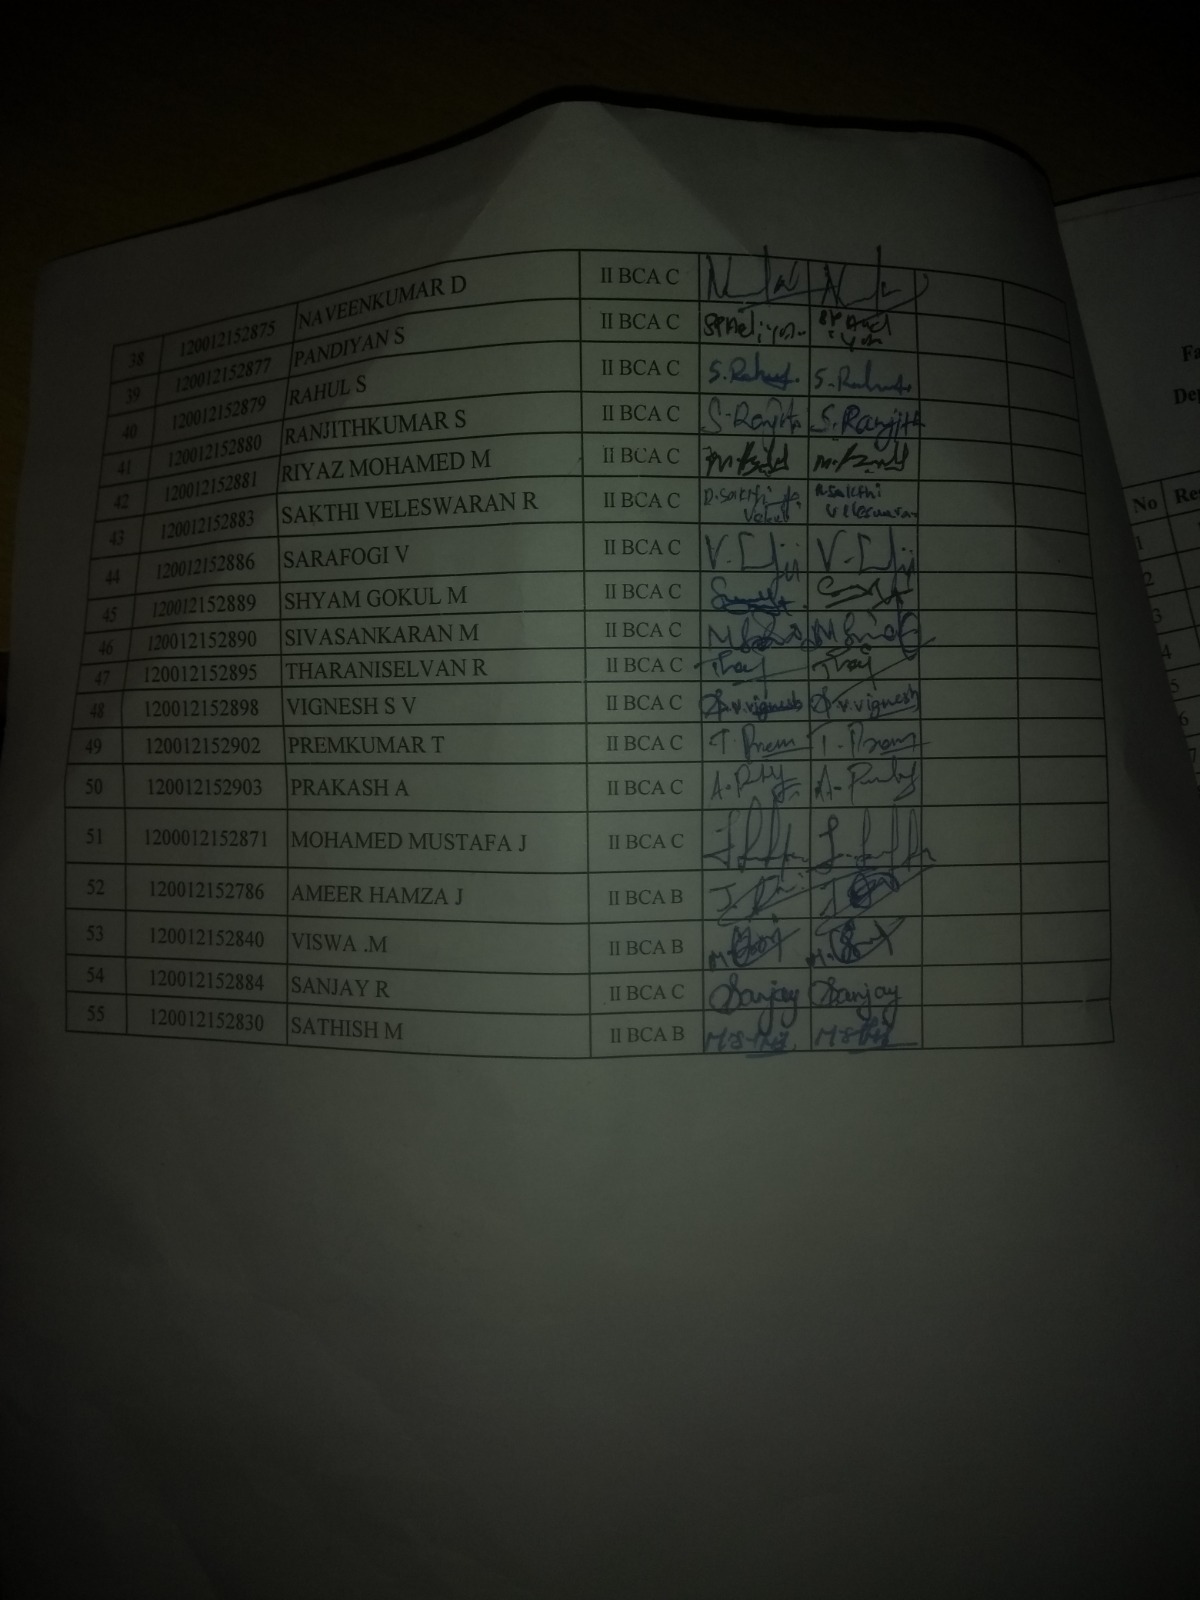 38 120012152875 NAVEENKUMAR D II BCA C
39 120012152877 PANDIYAN S II BCA C
40 120012152879 RAHUL S II BCA C S. Rahul S. Rahul
41 120012152880 RANJITHKUMAR S II BCA C S. Ranjith
42 120012152881 RIYAZ MOHAMED M II BCA C
43 120012152883 SAKTHI VELESWARAN R II BCA C R. Sakthi Veleswaran
44 120012152886 SARAFOGI V II BCA C
45 120012152889 SHYAM GOKUL M II BCA C
46 120012152890 SIVASANKARAN M II BCA C
47 120012152895 THARANISELVAN R II BCA C
48 120012152898 VIGNESH S V II BCA C S.V.Vignesh S.V.Vignesh
49 120012152902 PREMKUMAR T II BCA C T. Prem T. Prem
50 120012152903 PRAKASH A II BCA C
51 1200012152871 MOHAMED MUSTAFA J II BCA C
52 120012152786 AMEER HAMZA J II BCA B
53 120012152840 VISWA .M II BCA B
54 120012152884 SANJAY R II BCA C Sanjay Sanjay
55 120012152830 SATHISH M II BCA B
No
1
2
3
4
5
6
7